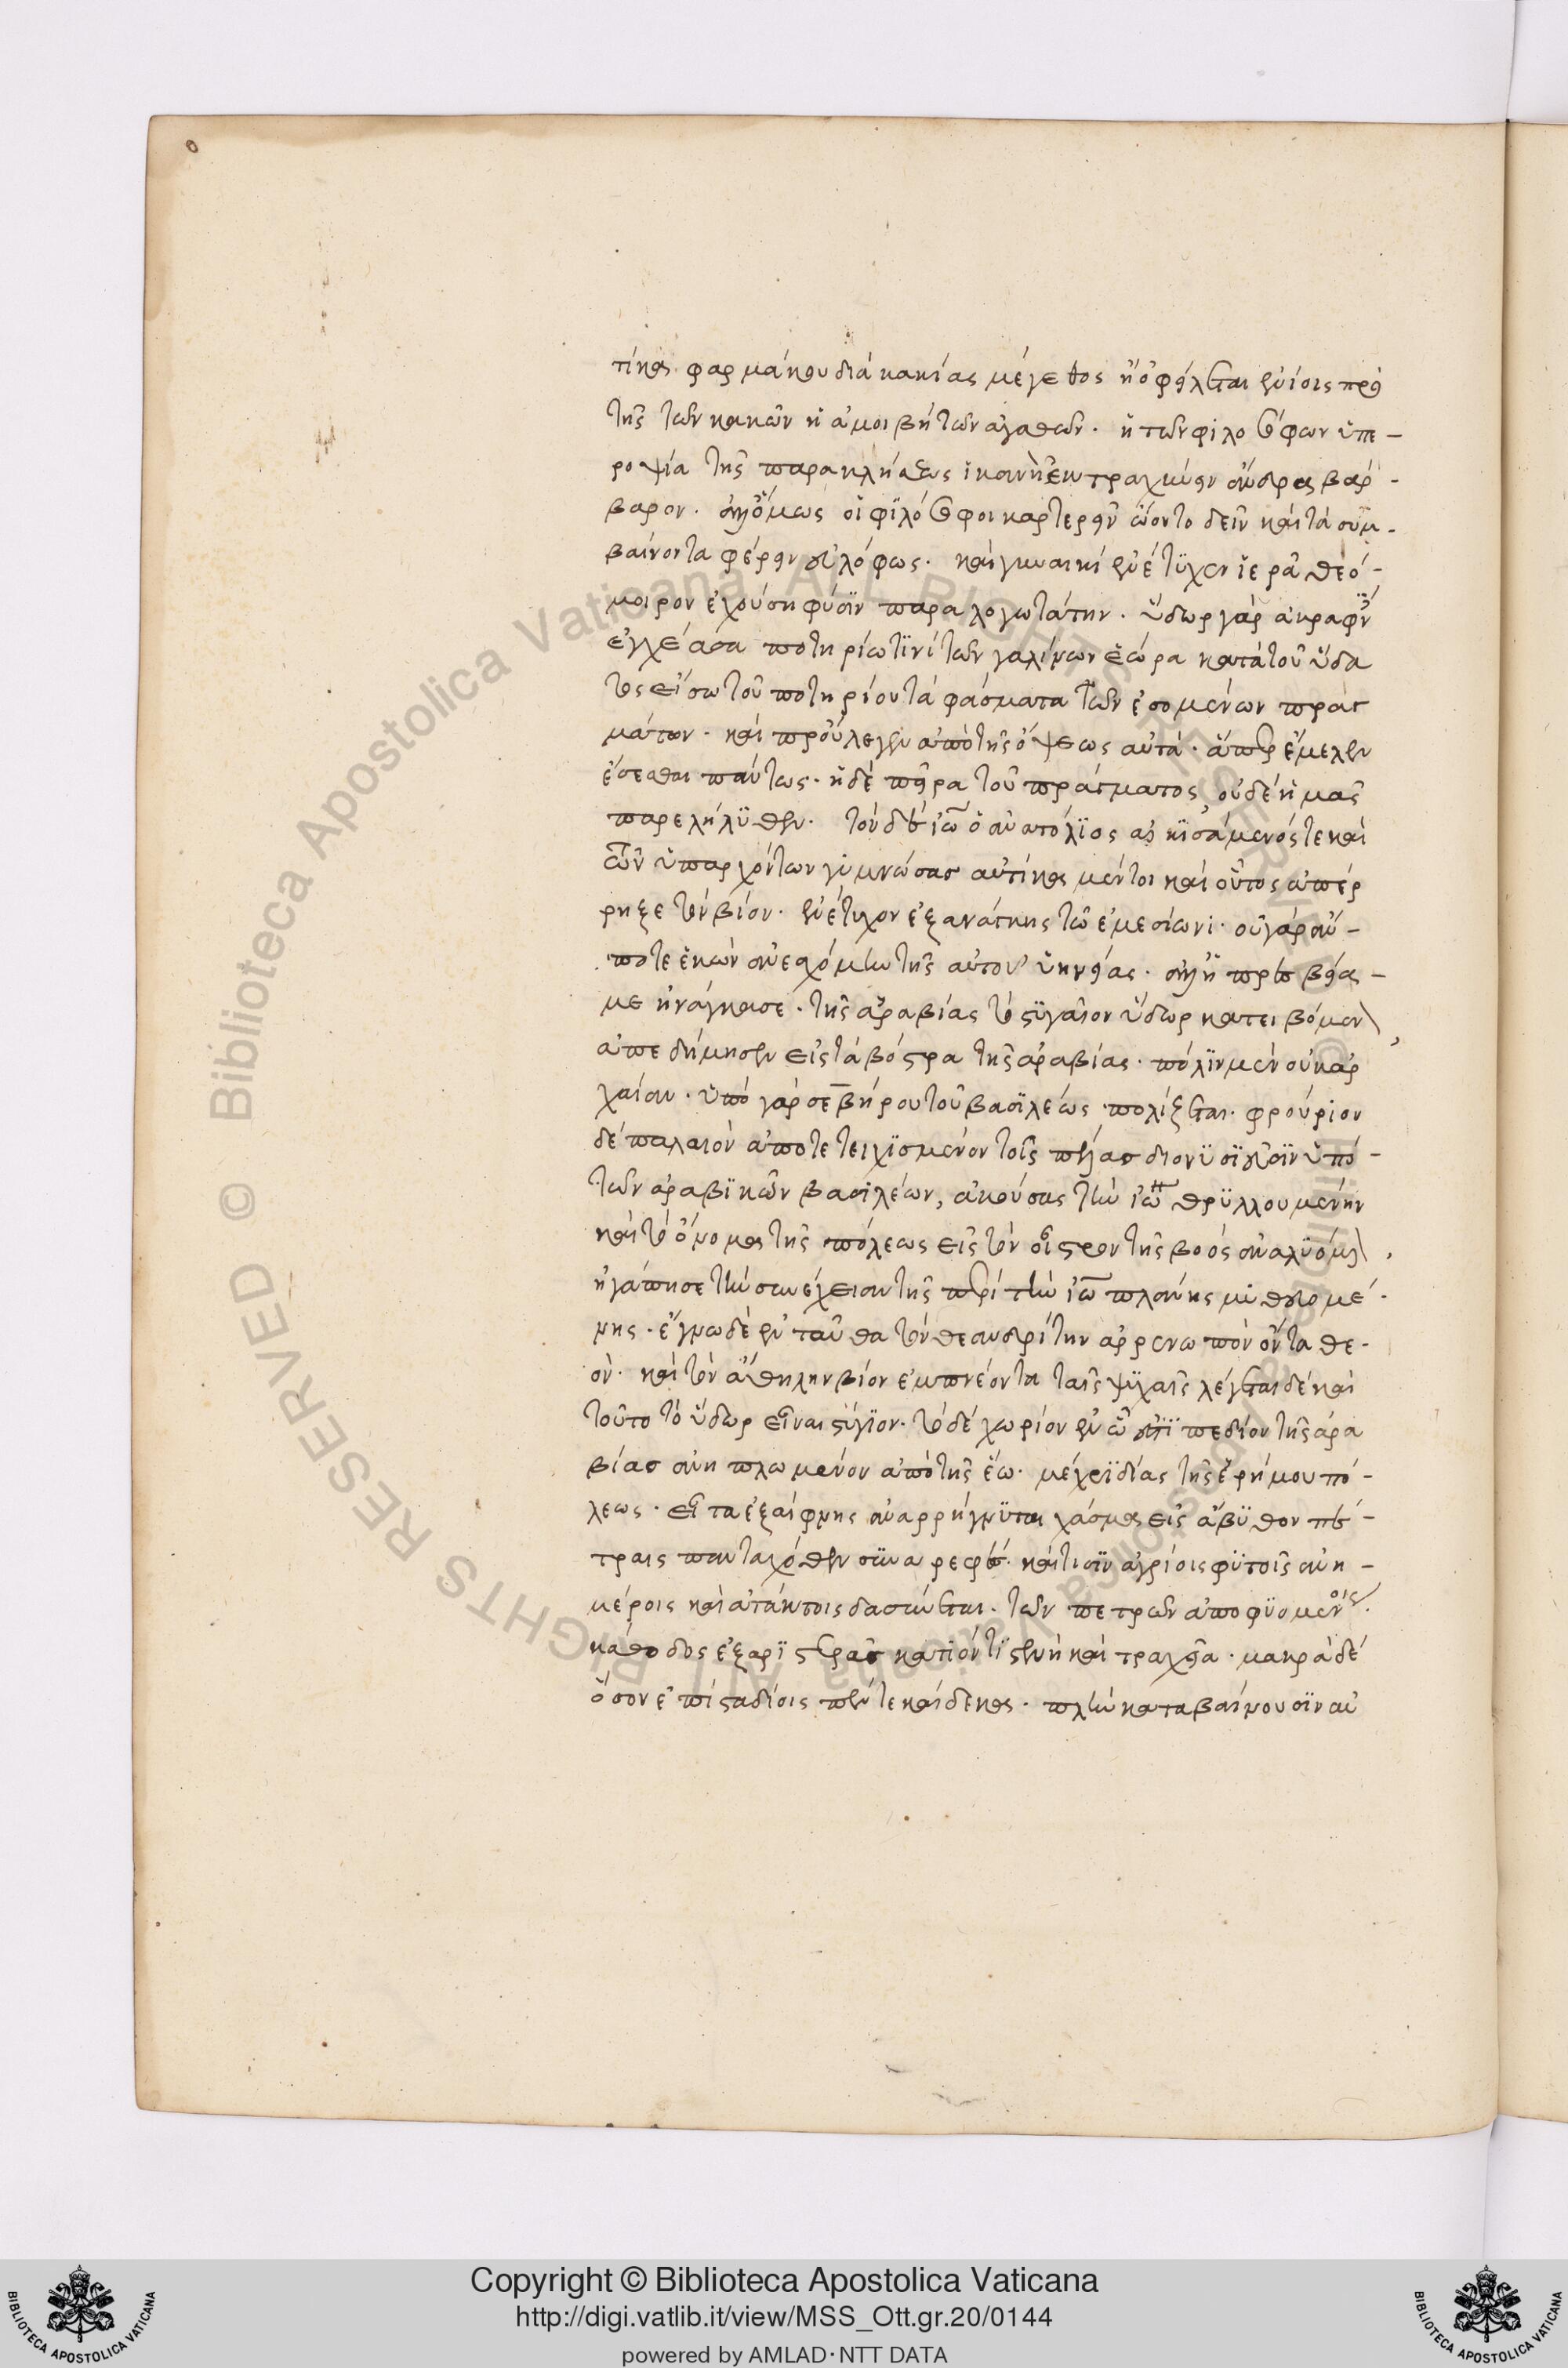 τίκα φαρμάκου διὰ κακίας μέγεθος ἢ ὀφείλεται ἐνίοις παρὰ
τῆς τῶν κακῶν ἡ ἀμοιβὴ τῶν ἀγαθῶν. ἡ τῶν φιλοσόφων ὑπε-
ροψία τῆς παρακλήσεως ἱκανὴ ἐκτραχύνειν ἄνδρας βαρ-
βαρον. ἀλλ' ὅμως οἱ φϊλόσοφοι καρτερεῖν ᾤοντο δεῖν καὶ τὰ συμ-
βαίνοντα φέρειν εὐλόφως. καὶ γυναικὶ ἐνέτϋχεν ἱερᾶ θεό-
μοιρον ἐχούση φύσϊν παραλογωτάτην. ὕδωρ γὰρ ἀκραιφνὲς
ἐγχέασα ποτηρίω τϊνὶ τῶν γαλίνων ἑώρα κατὰ τοῦ ὕδα
τος εἴσω τοῦ ποτηρίου τὰ φάσματα τῶν ἐσομένων πραγ
μάτων. καὶ προὔλεγεν ἀπὸ τῆς ὄψεως αὐτὰ. ἅπερ ἔμελεν
ἔσεσθαι πάντως. ἡ δὲ πεῖρα τοῦ πράγματος οὐδὲ ἡμᾶς
παρελήλϋθεν. τὸν δὲ ἰω ὁ ἀναπόλϊος αἰκϊσάμενός τε καὶ
τῶν ὑπαρχόντων γυμνώσας αὐτίκα μέντοι καὶ οὗτος ἀπέρ
ρηξε τὸν βίον. ἐνέτυχον ἐξ ἀνάγκης τῶ ἐμεσίωνι. οὐ γὰρ ἄν-
ποτε ἑκὼν ἀνεσχόμην τῆς αὐτοῦ ὑηνείας. ἀλλ' ἡ πρεσβεία-
με ἠνάγκασε. τῆς ἀραβίας τὸ στϋγαῖον ὕδωρ κατειβόμεν
ἀπεδήμησεν εἰς τὰ βόστρα τῆς ἀραβίας. πόλϊν μὲν οὐκ ἀρ
χαίαν. ὑπὸ γὰρ σεβήρου τοῦ βασϊλέως πολίζεται. φρούριον
δὲ παλαιὸν ἀποτετειχϊσμένον τοῖς πέλας διονϋσϊεῦσϊν ὑπὸ-
τῶν ἀραβϊκῶν βασιλέων, ἀκούσας τὴν ἰω θρϋλλουμένην
καὶ τὸ ὄνομα τῆς πόλεως εἰς τὸν οἶστρον τῆς βοὸς ἀναλϋόμεν
ἠγάπησε τὴν συνέχειαν τῆς περὶ τὴν ἰω πλάνης μυθευομέ-
νης. ἔγνω δὲ ἐνταῦθα τὸν θεανδρίτην ἀρρενωπὸν ὄντα θε-
όν. καὶ τὸν ἄθηλην βίον ἐμπνέοντα ταῖς ψϋχαῖς λέγεται δὲ καὶ
τοῦτο τὸ ὕδωρ εἶναι στύγϊον. τὸ δὲ χωρίον ἐν ᾧ ἐστϊ πεδίον τῆς ἀρα
βίας ἀνηπλωμένον ἀπὸ τῆς ἕω. μέχρϊ δίας τῆς ἐρήμου πό-
λεως. εἶτα ἐξαίφνης ἀναρρήγνϋται χάσμα εἰς ἄβϋθον πέ-
τραις πανταχόθεν σϋναρεφὲς. καί τισϊν ἀγρίοις φϋτοῖς ἀνη-
μέροις καὶ ἀτάκτοις δασύνεται. τῶν πετρῶν ἀποφϋομένοις.
κάθοδος ἐξ ἀρϊστερᾶς κατιόντϊ στενὴ καὶ τραχεῖα. μακρὰ δὲ
ὅσον ἐπὶ σταδίοις πέντε καὶ δέκα. πλὴν καταβαίνουσϊν αὐ
Copyright © Biblioteca Apostolica Vaticana
http://digi.vatlib.it/view/MSS_Ott.gr.20/0144
powered by AMLAD·NTT DATA